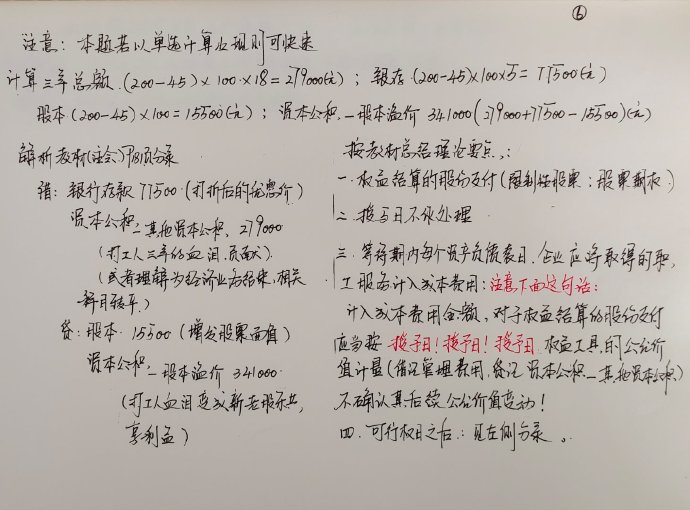 ⑥
注意：本题若以单选计算出现则可快速
计算三年总额.(200-45)×100×18=279000(元)；银存.(200-45)×100×5=77500(元)
股本(200-45)×100=15500(元)；资本公积.-股本溢价 341000(279000+77500-15500)(元)
解析教材(注会)P181页分录
借：银行存款 77500(打折后的优惠价)
资本公积-其他资本公积.279000
(打工人三年的血泪.贡献)
(或者理解为经济业务结束,相关
科目转平)
贷：股本.15500(增发股票面值)
资本公积-股本溢价 341000.
(打工人血泪变成新老股东共
享利益)
按教材总结理论要点：
一.权益结算的股份支付(限制性股票；股票期权)
二.授予日不作处理
三.等待期内每个资产负债表日.企业应将取得的职
工服务计入成本费用：注意下面这句话：
计入成本费用金额,对于权益结算的股份支付
应当按 授予日！授予日！授予日.权益工具的公允价
值计量(借记管理费用.贷记资本公积-其他资本公积)
不确认其后续公允价值变动！
四.可行权日之后：见左侧分录。